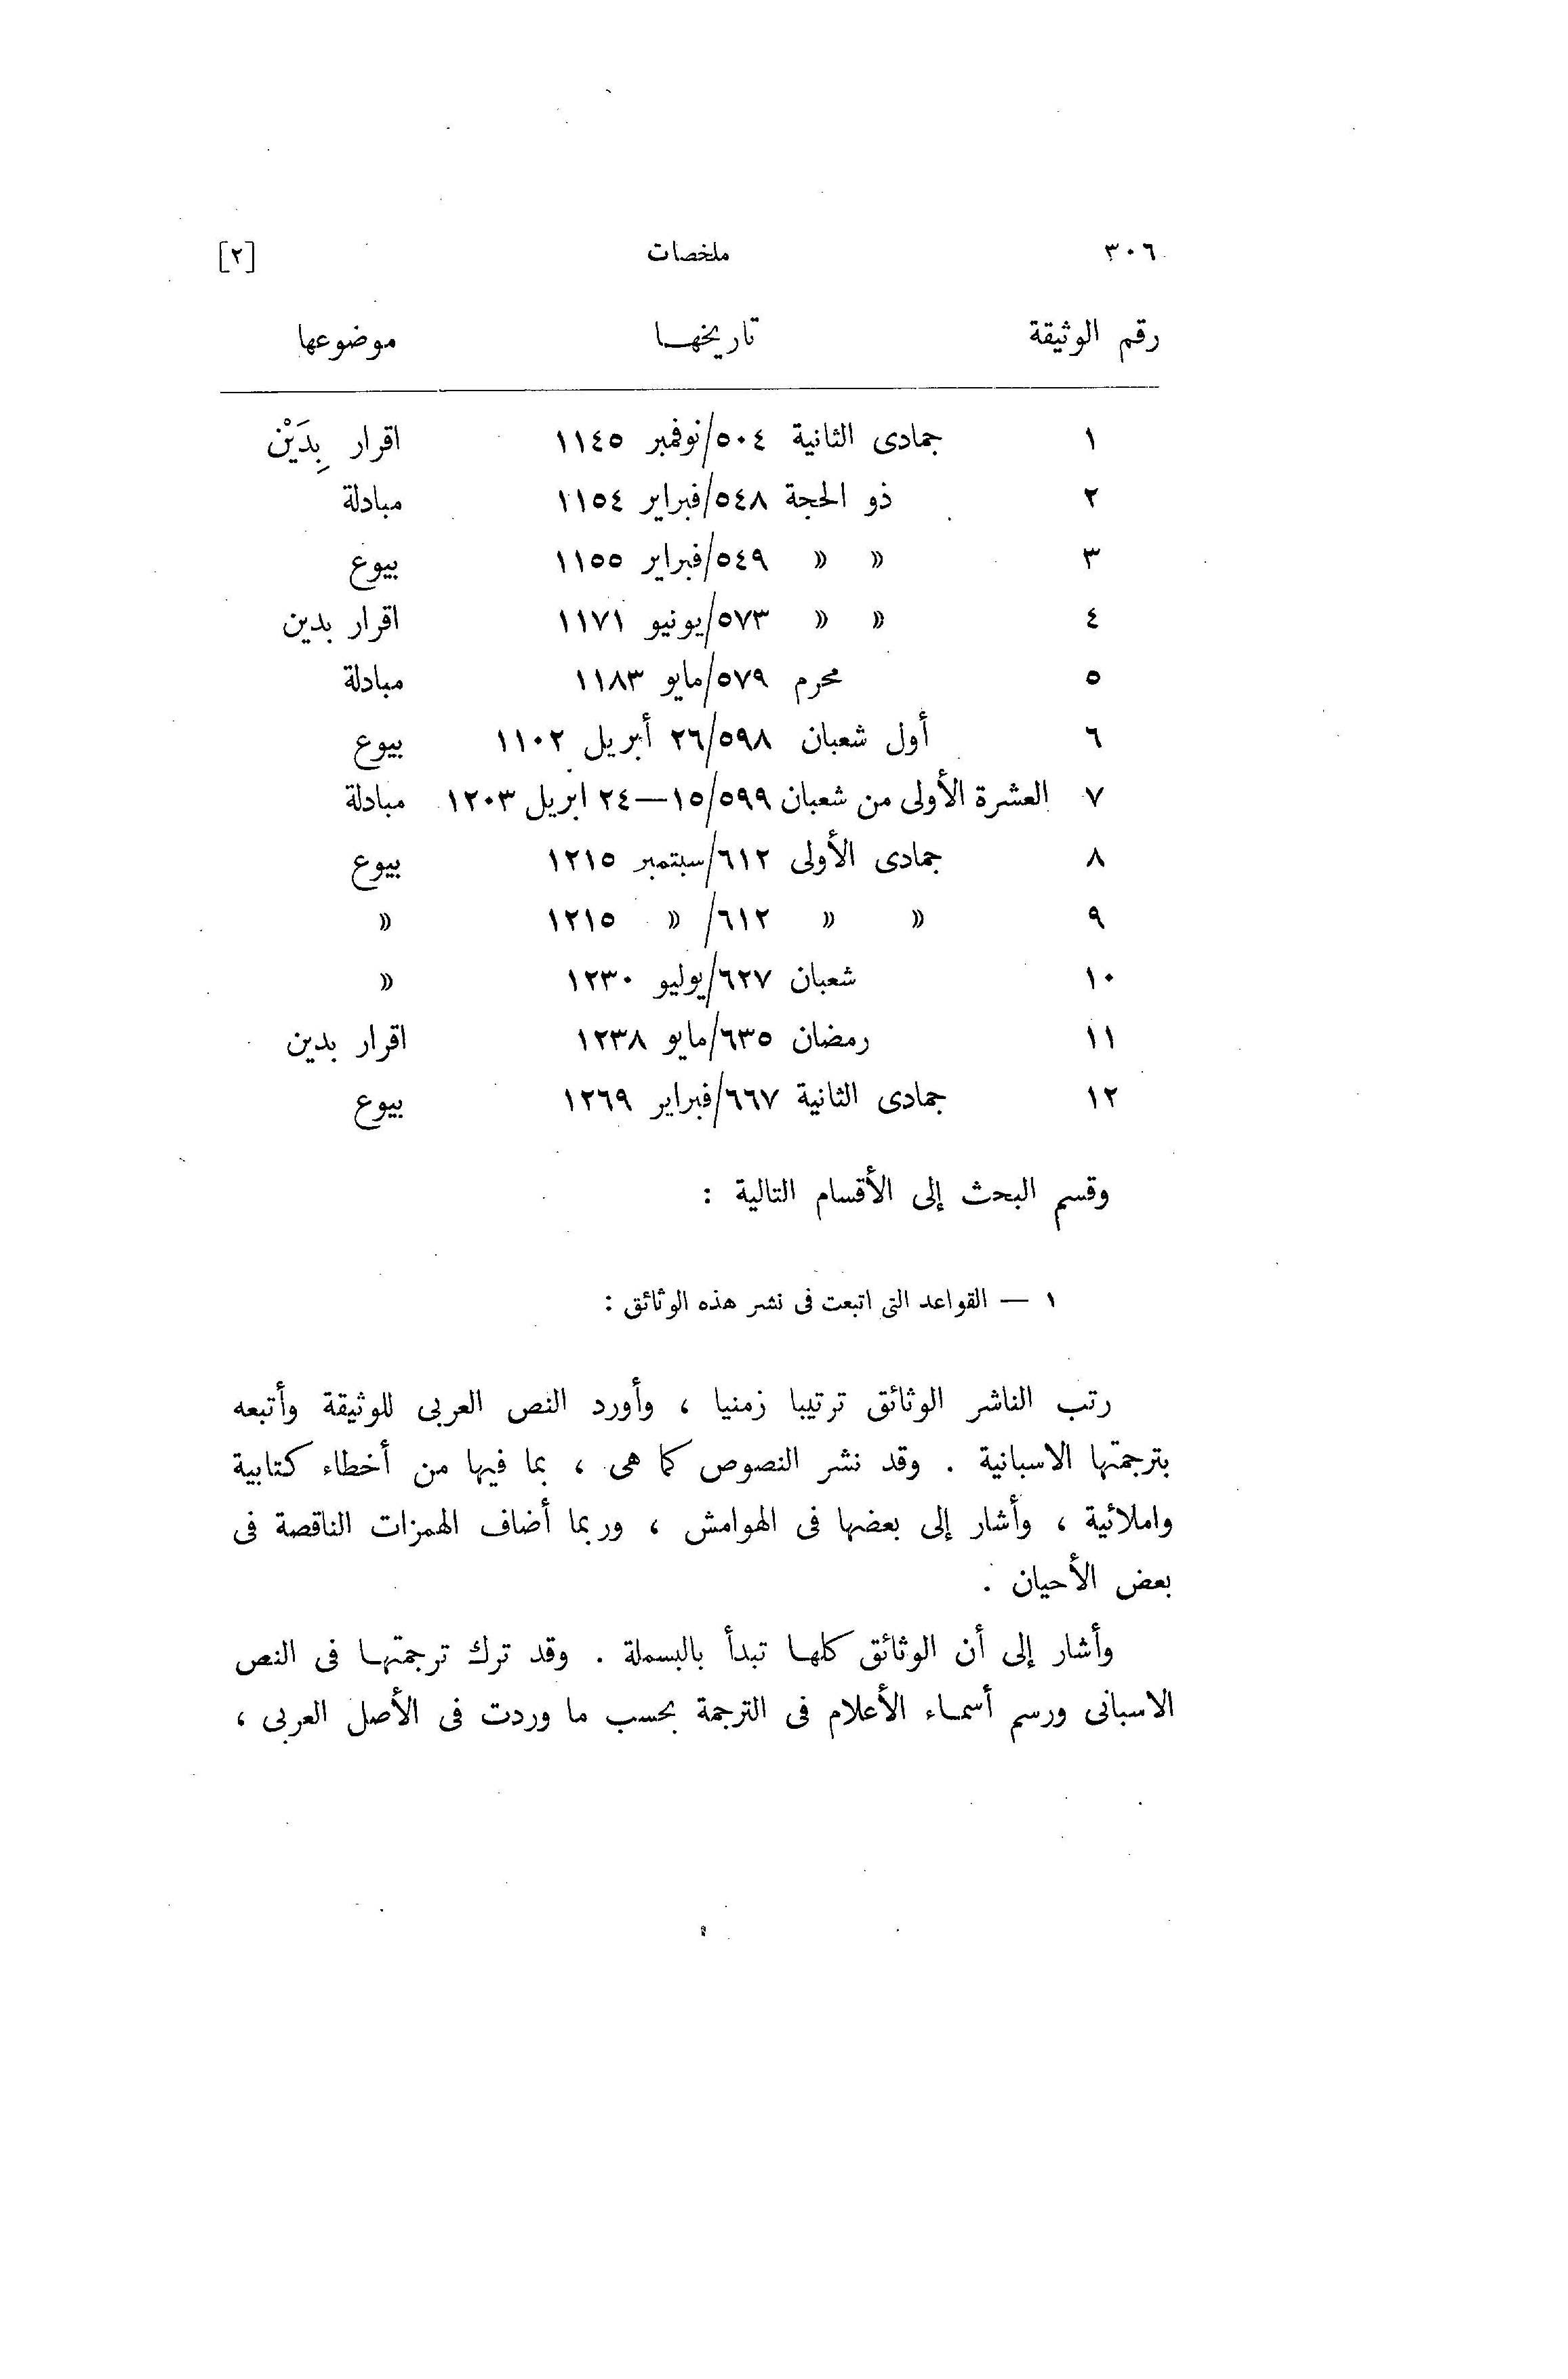 ٣٠٦ ملخصات [٢]
رقم الوثيقة تاريخهـا موضوعها
١ جمادى الثانية ٥٠٤/نوفمبر ١١٤٥ اقرار بِدَيْن
٢ ذو الحجة ٥٤٨/فبراير ١١٥٤ مبادلة
٣ » » ٥٤٩/فبراير ١١٥٥ بيوع
٤ » » ٥٧٣/يونيو ١١٧١ اقرار بدين
٥ محرم ٥٧٩/مايو ١١٨٣ مبادلة
٦ أول شعبان ٥٩٨/٢٦ أبريل ١١٠٢ بيوع
٧ العشرة الأولى من شعبان ٥٩٩/١٥—٢٤ ابريل ١٢٠٣ مبادلة
٨ جمادى الأولى ٦١٢/سبتمبر ١٢١٥ بيوع
٩ » » ٦١٢/ » ١٢١٥ »
١٠ شعبان ٦٢٧/يوليو ١٢٣٠ »
١١ رمضان ٦٣٥/مايو ١٢٣٨ اقرار بدين
١٢ جمادى الثانية ٦٦٧/فبراير ١٢٦٩ بيوع
وقسم البحث إلى الأقسام التالية :
١ — القواعد التى اتبعت فى نشر هذه الوثائق :
رتب الناشر الوثائق ترتيبا زمنيا ، وأورد النص العربى للوثيقة وأتبعه
بترجمتها الاسبانية . وقد نشر النصوص كما هى ، بما فيها من أخطاء كتابية
واملائية ، وأشار إلى بعضها فى الهوامش ، وربما أضاف الهمزات الناقصة فى
بعض الأحيان .
وأشار إلى أن الوثائق كلهـا تبدأ بالبسملة . وقد ترك ترجمتهـا فى النص
الاسبانى ورسم أسمـاء الأعلام فى الترجمة بحسب ما وردت فى الأصل العربى ،